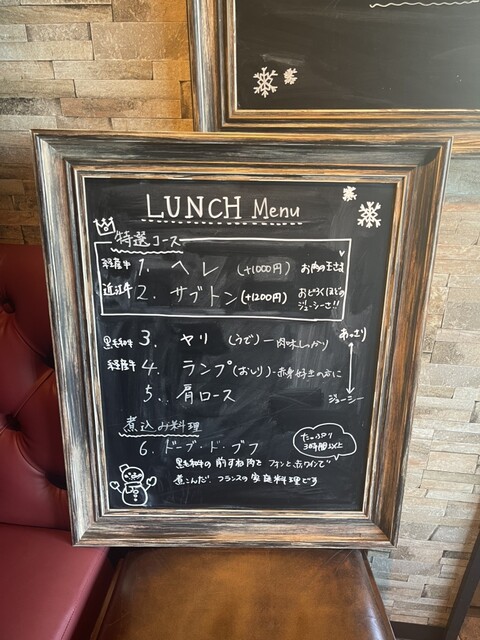 LUNCH Menu
特選コース
経産牛 1. ヘレ (+1000円) お肉の王さま
近江牛 2. サブトン (+1200円) おどろくほどの
ジューシーさ!!
黒毛和牛 3. ヤリ (うで) — 肉味しっかり あっさり
経産牛 4. ランプ (おしり) - 赤身好きの方に
5. 肩ロース ジューシー
煮込み料理
6. ドーブ・ド・ブフ たっぷり
3時間以上
黒毛和牛の すね肉を フォンと赤ワインで
煮こんだ フランスの家庭料理です